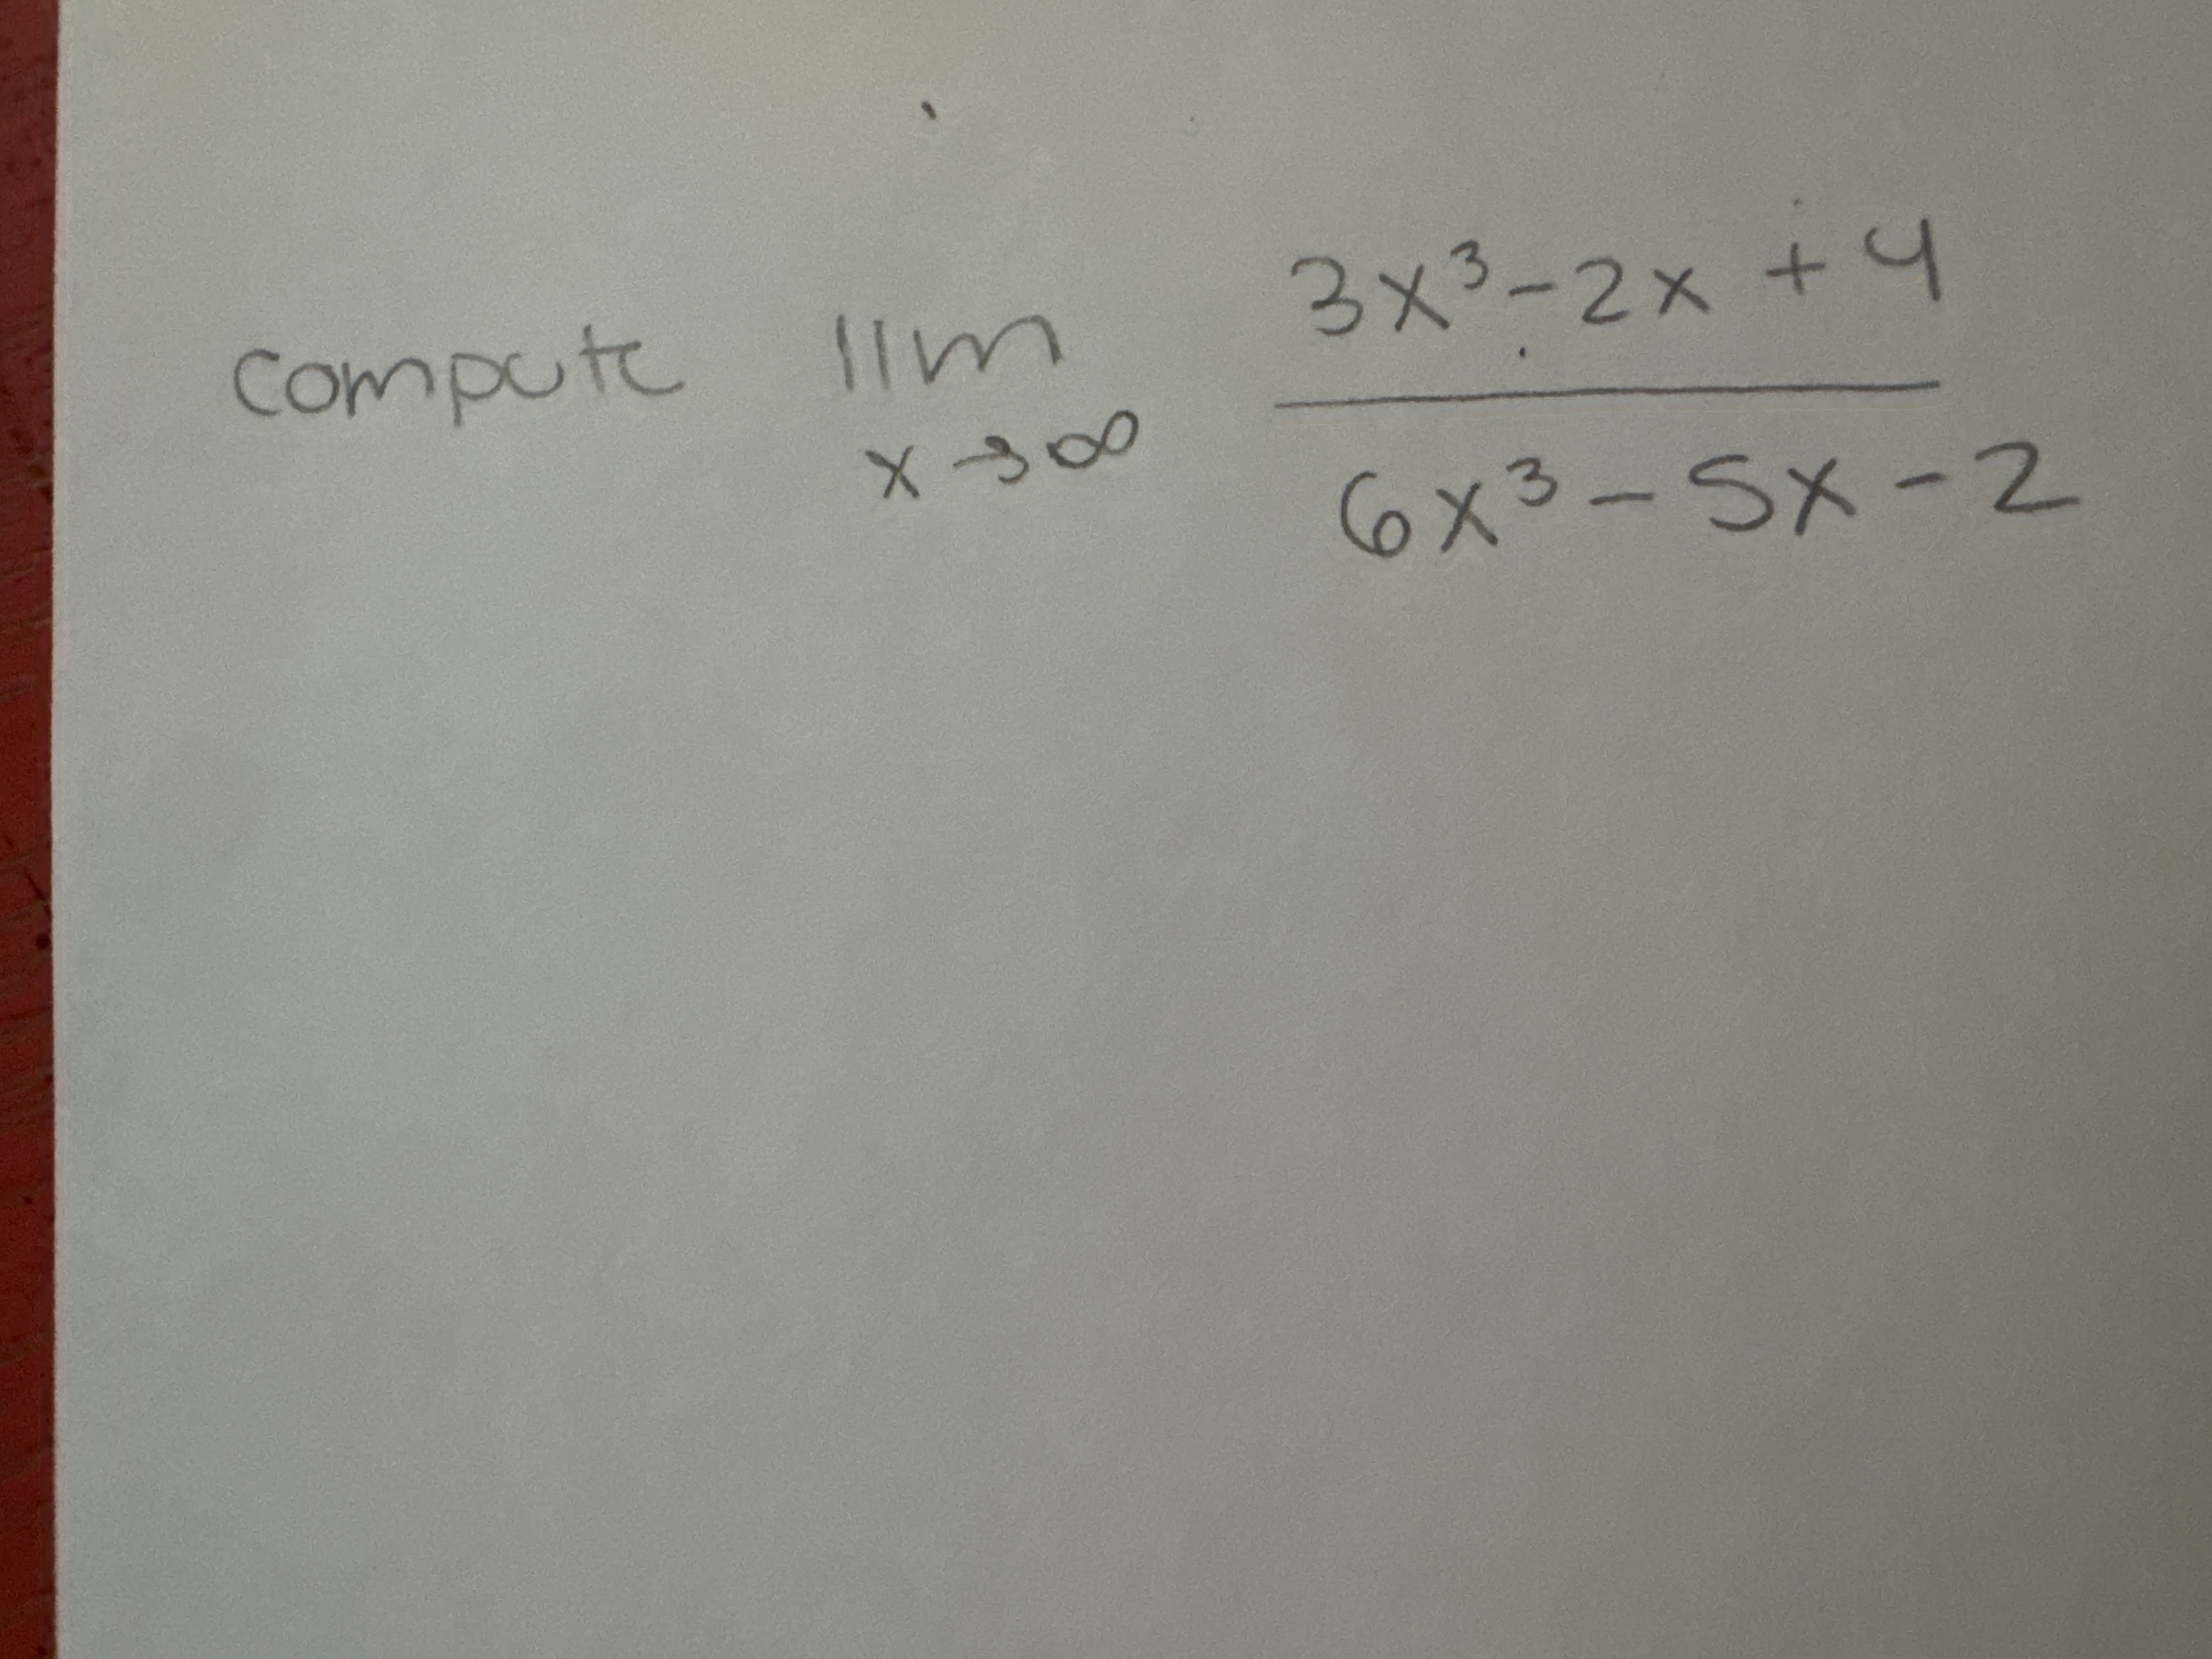 compute lim x→∞ (3x³-2x+4)/(6x³-5x-2)